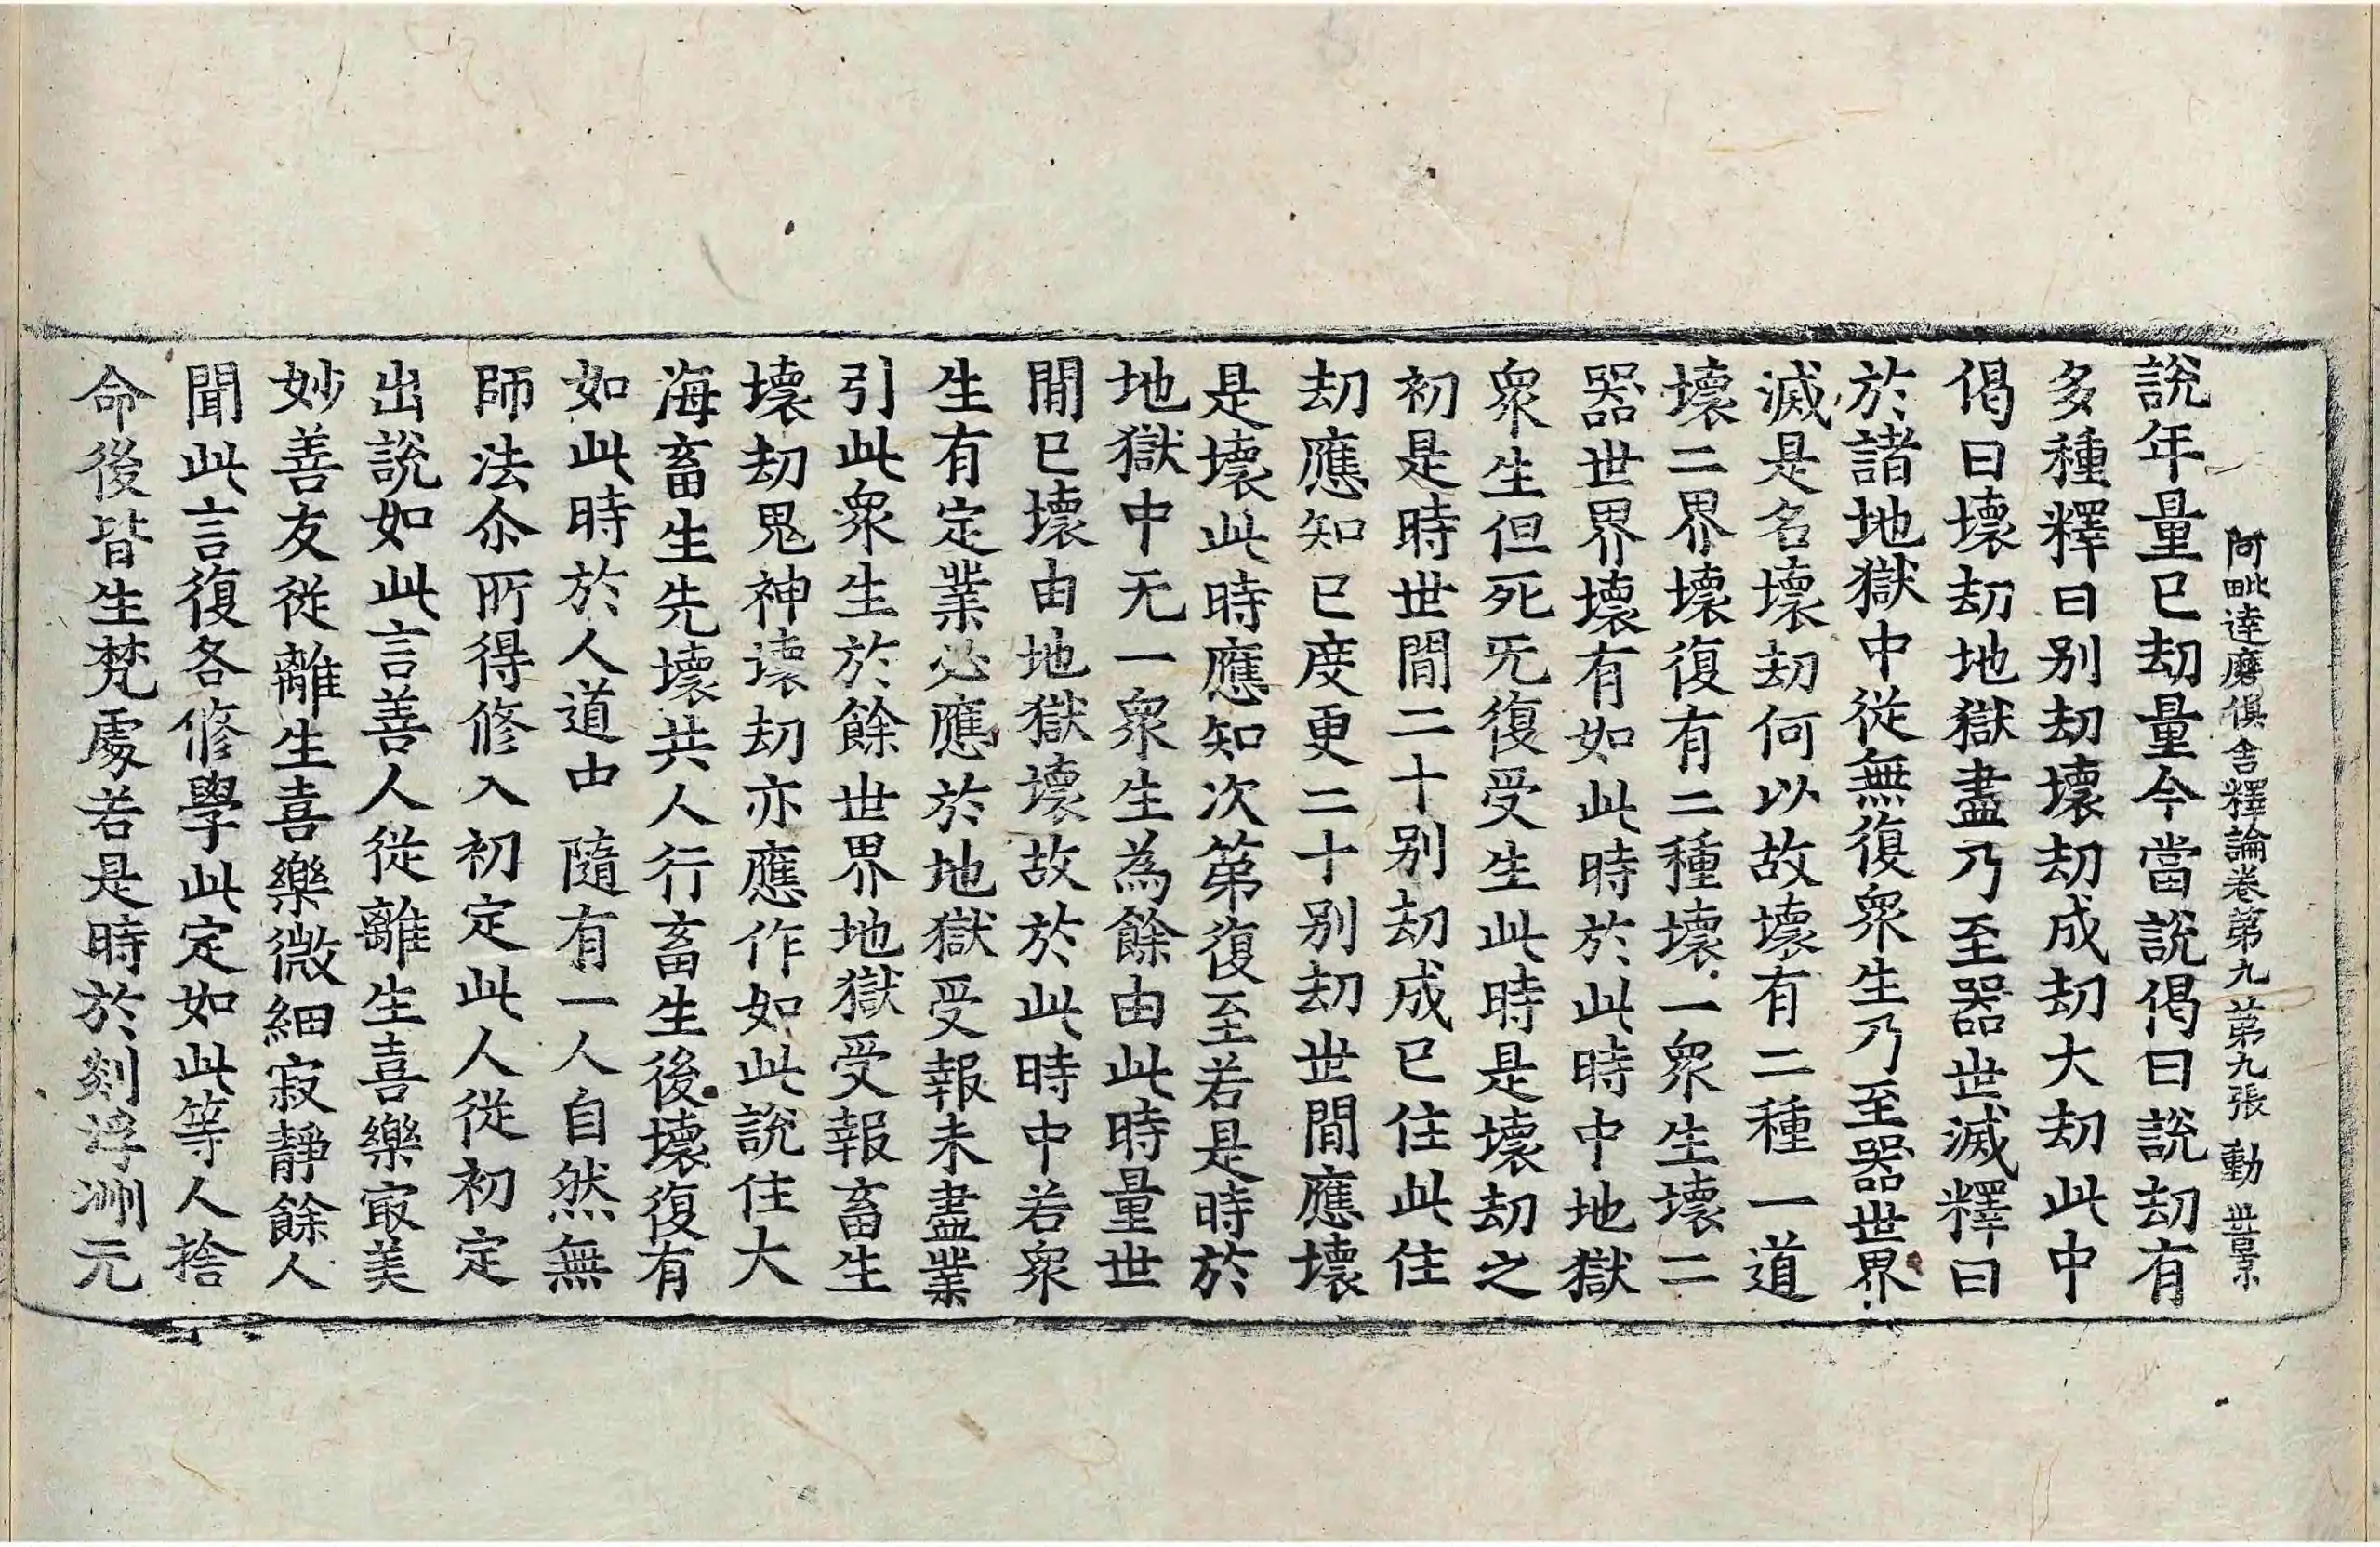 阿毗達磨俱舍釋論卷第九 第九張 動 世景
說年量已劫量今當說偈曰說劫有
多種釋曰別劫壞劫成劫大劫此中
偈曰壞劫地獄盡乃至器世滅釋曰
於諸地獄中從無復衆生乃至器世界
滅是名壞劫何以故壞有二種一道
壞二界壞復有二種壞一衆生壞二
器世界壞有如此時於此時中地獄
衆生但死无復受生此時是壞劫之
初是時世間二十別劫成已住此住
劫應知已度更二十別劫世間應壞
是壞此時應知次第復至若是時於
地獄中无一衆生為餘由此時量世
間已壞由地獄壞故於此時中若衆
生有定業必應於地獄受報未盡業
引此衆生於餘世界地獄受報畜生
壞劫鬼神壞劫亦應作如此說住大
海畜生先壞共人行畜生後壞復有
如此時於人道中隨有一人自然無
師法尒所得修入初定此人從初定
出說如此言善人從離生喜樂㝡美
妙善友從離生喜樂微細寂靜餘人
聞此言復各修學此定如此等人捨
命後皆生梵處若是時於剡浮洲无